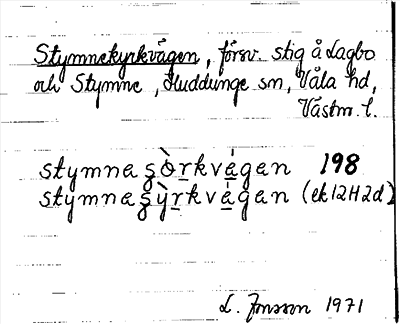 Stymnekyrkvägen, försv. stig å Lagbo
och Stymne, Huddunge sn, Våla hd,
Västm. l.
stymnaʂò̱rkvá̱gan 198
stymnaʂỳ̱rkvá̱gan (ek 12H2d)
L. Jonsson 1971